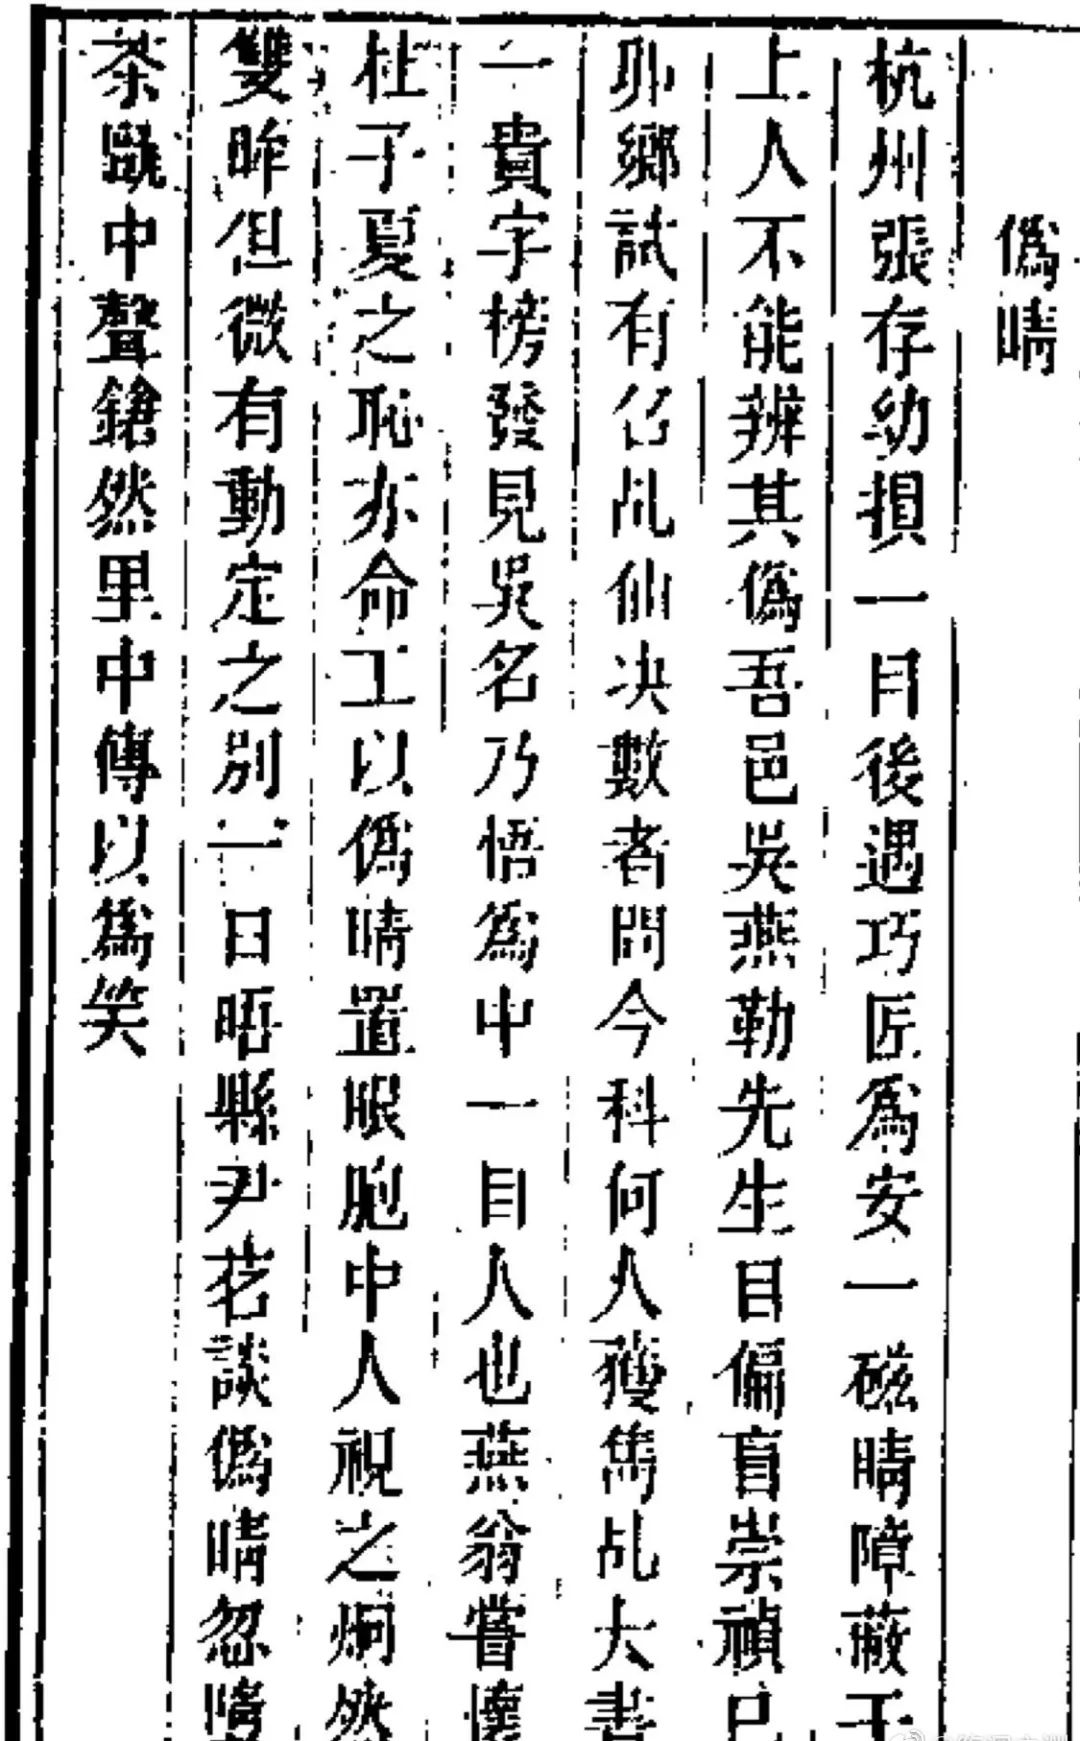 偽睛
杭州張存幼損一目後遇巧匠為安一磁睛障蔽于
上人不能辨其偽吾邑吳燕勒先生目偏盲崇禎己
卯鄉試有召乩仙决數者問今科何人獲雋乩大書
一貴字榜發見吳名乃悟為中一目人也燕翁嘗懷
杜子夏之恥亦命工以偽睛置眼胞中人視之炯然
雙眸但微有動定之別一日晤縣尹茗談偽睛忽
茶甌中聲鎗然里中傳以為笑